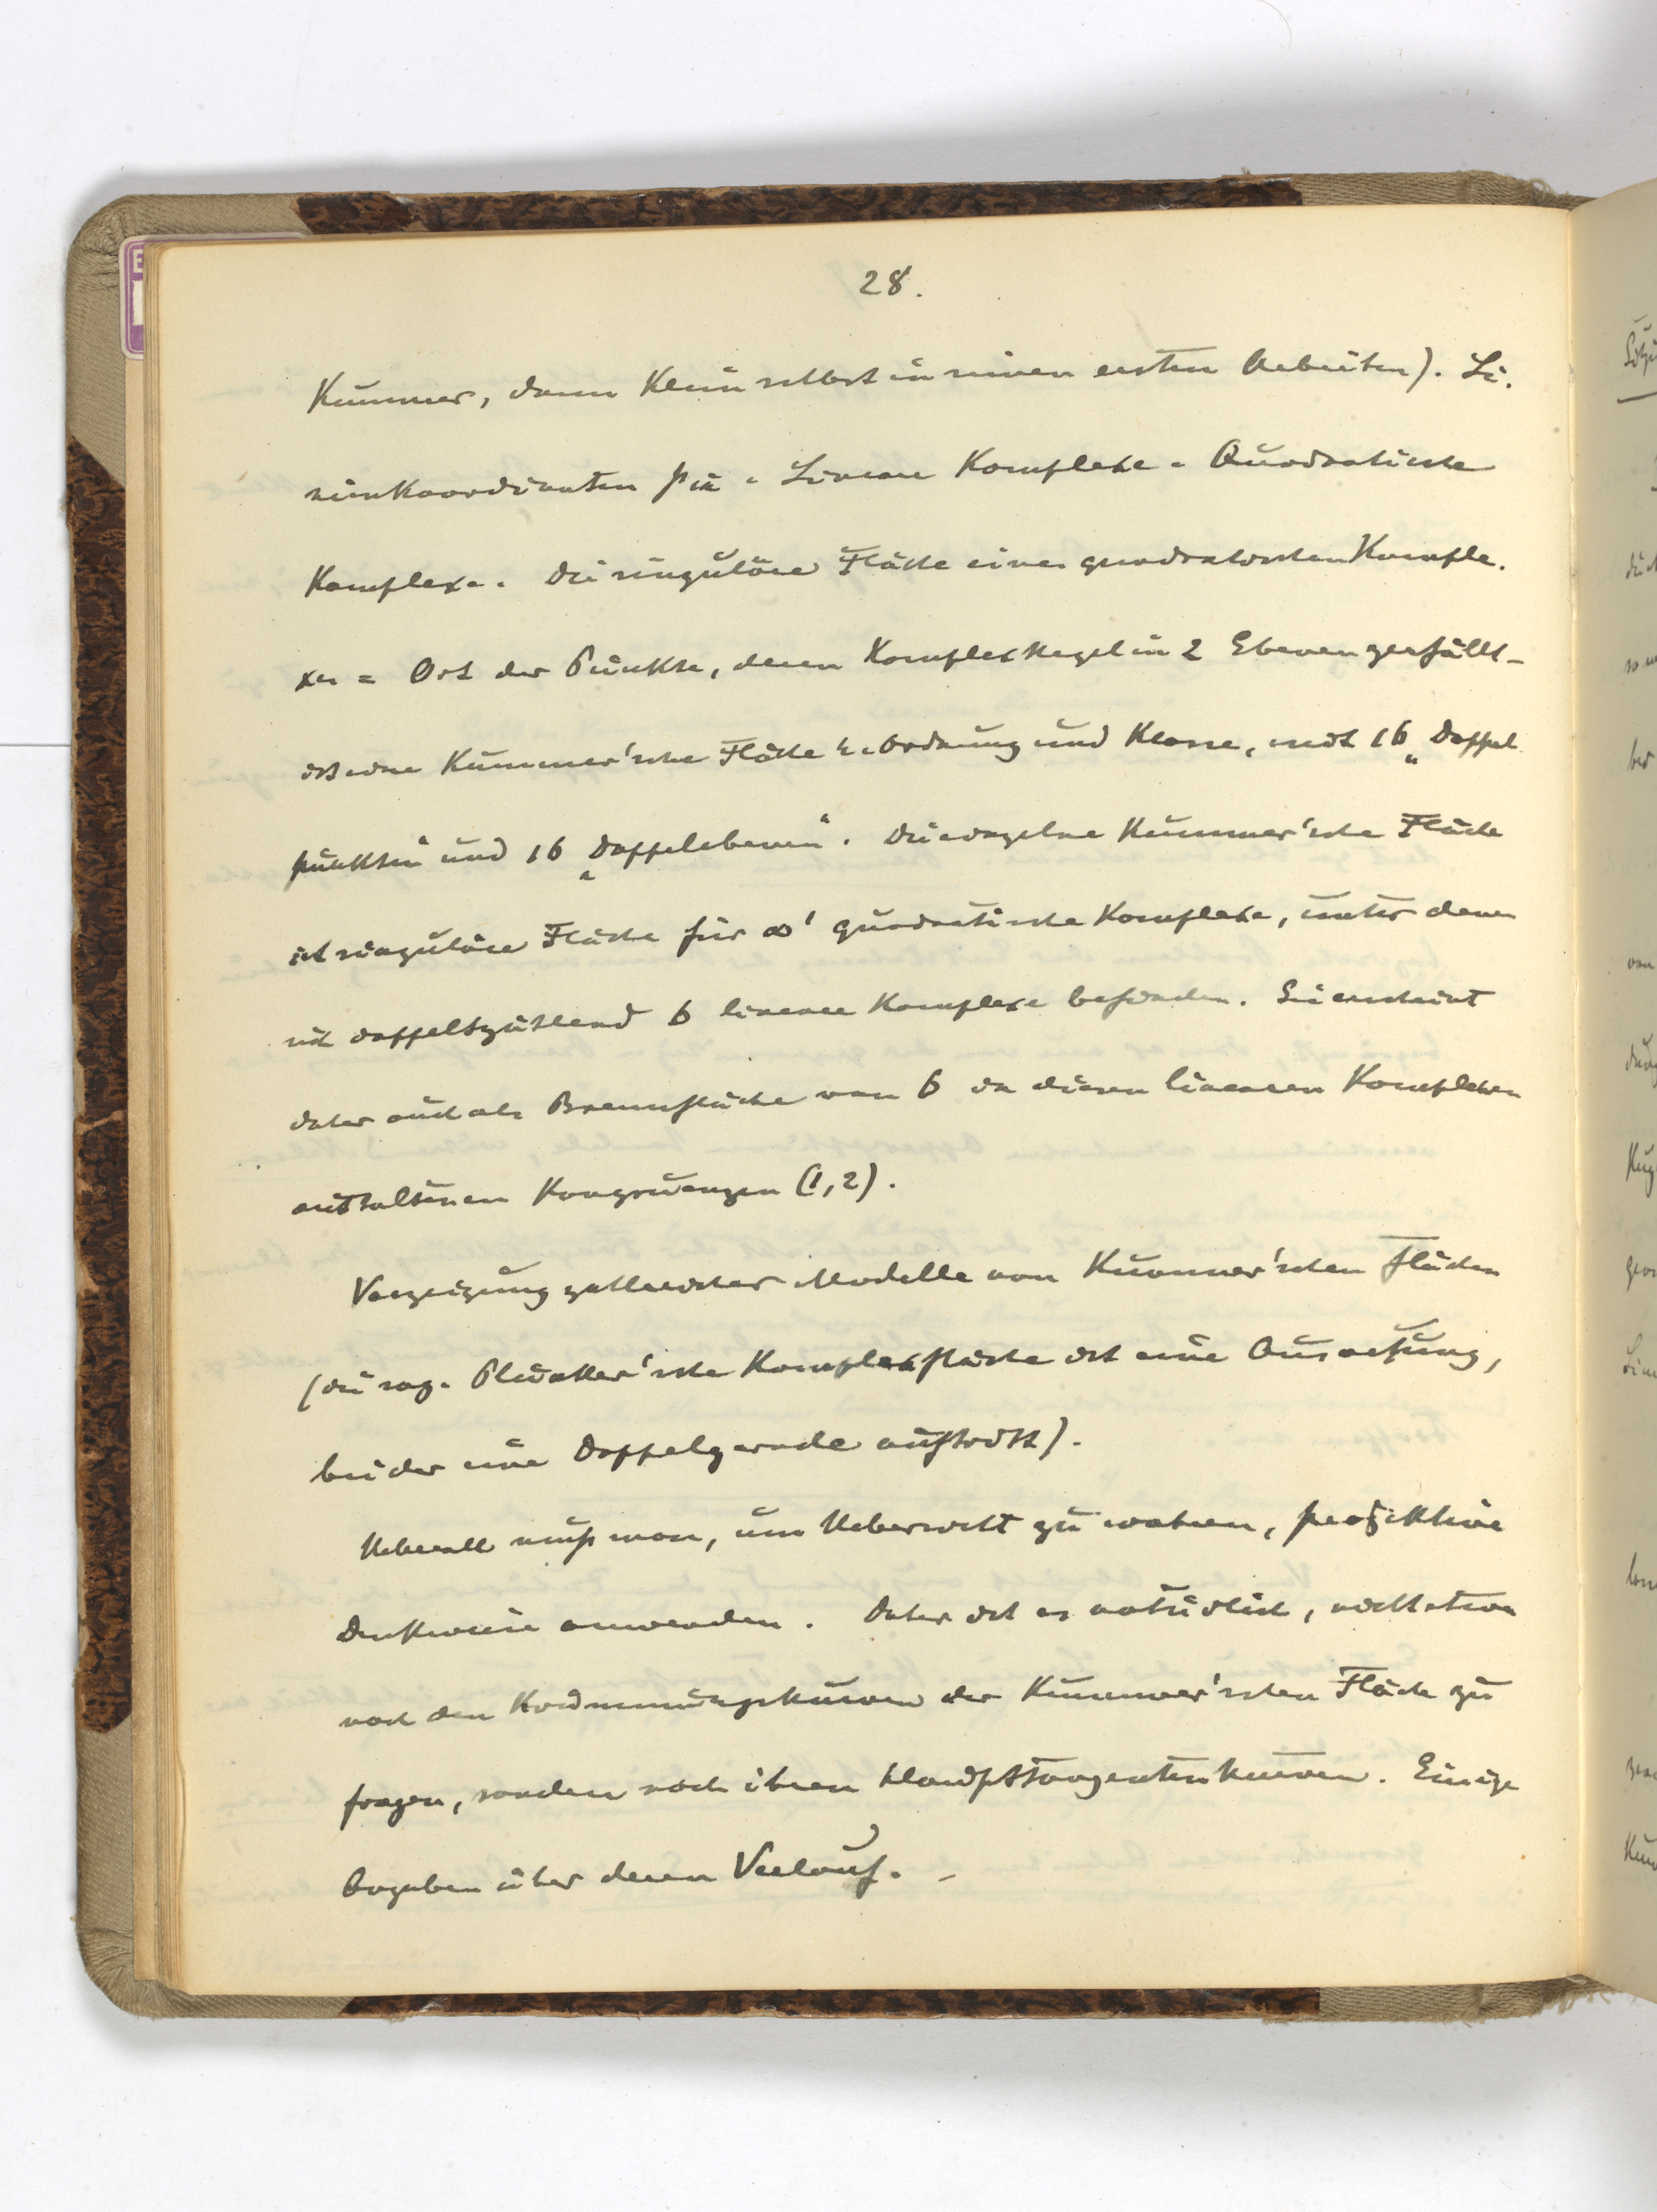 28.
Kummer, dann Klein selbst in seinen ersten Arbeiten). Li-
nienkoordinaten pik. Lineare Komplexe. Quadratische
Komplexe. Die singuläre Fläche eines quadratischen Komple-
xes = Ort der Punkte, deren Komplexkegel in 2 Ebenen zerfällt -
ist eine Kummer'sche Fläche 4. Ordnung und Klasse, mit 16 „Doppel
punkten“ und 16 „Doppelebenen“. Die einzelne Kummer'sche Fläche
ist singuläre Fläche für ∞¹ quadratische Komplexe, unter denen
sich doppeltzählend 6 lineare Komplexe befinden. Sie erscheint
daher auch als Brennfläche von 6 in diesen linearen Komplexen
enthaltenen Kongruenzen (1,2).
Vorzeigung zahlreicher Modelle von Kummer'schen Flächen
(die sog. Plücker'sche Komplexfläche ist eine Ausartung,
bei der eine Doppelgerade auftritt).
Ueberall muß man, um Uebersicht zu wahren, projektive
Denkweise anwenden. Daher ist es natürlich, nicht etwa
nach den Krümmungskurven der Kummer'schen Fläche zu
fragen, sondern nach ihren Haupttangentenkurven. Einige
Angaben über deren Verlauf. -